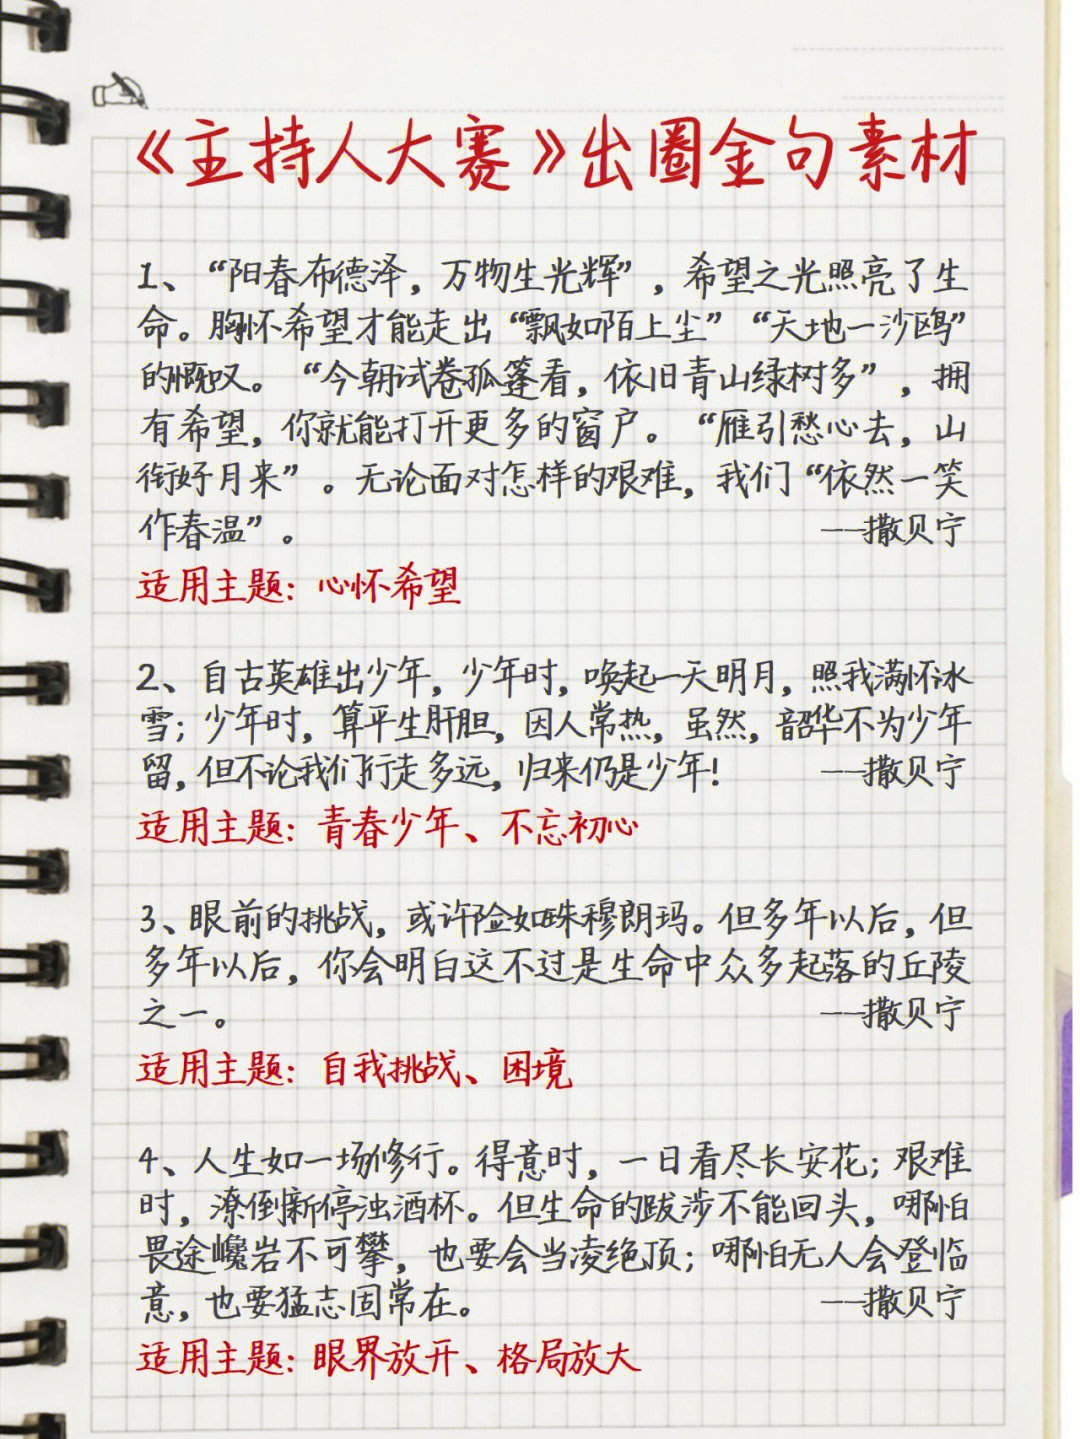 《主持人大赛》出圈金句素材
1、“阳春布德泽，万物生光辉”，希望之光照亮了生
命。胸怀希望才能走出“飘如陌上尘”“天地一沙鸥”
的慨叹。“今朝试卷孤篷看，依旧青山绿树多”，拥
有希望，你就能打开更多的窗户。“雁引愁心去，山
衔好月来”。无论面对怎样的艰难，我们“依然一笑
作春温”。 ——撒贝宁
适用主题：心怀希望
2、自古英雄出少年，少年时，唤起一天明月，照我满怀冰
雪；少年时，算平生肝胆，因人常热，虽然，韶华不为少年
留，但不论我们行走多远，归来仍是少年！ ——撒贝宁
适用主题：青春少年、不忘初心
3、眼前的挑战，或许险如珠穆朗玛。但多年以后，但
多年以后，你会明白这不过是生命中众多起落的丘陵
之一。 ——撒贝宁
适用主题：自我挑战、困境
4、人生如一场修行。得意时，一日看尽长安花；艰难
时，潦倒新停浊酒杯。但生命的跋涉不能回头，哪怕
畏途巉岩不可攀，也要会当凌绝顶；哪怕无人会登临
意，也要猛志固常在。 ——撒贝宁
适用主题：眼界放开、格局放大